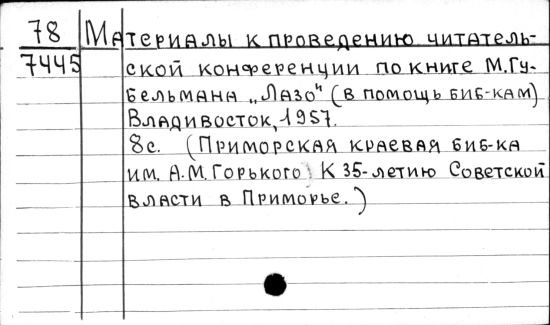 78 Материалы к проведению читатель-
7445 ской конференции по книге М.Гу-
бельмана „Лазо" (в помощь биб-кам)
Владивосток, 1957.
8с. (Приморская краевая биб-ка
им. А.М.Горького) К 35-летию Советской
власти в Приморье.)